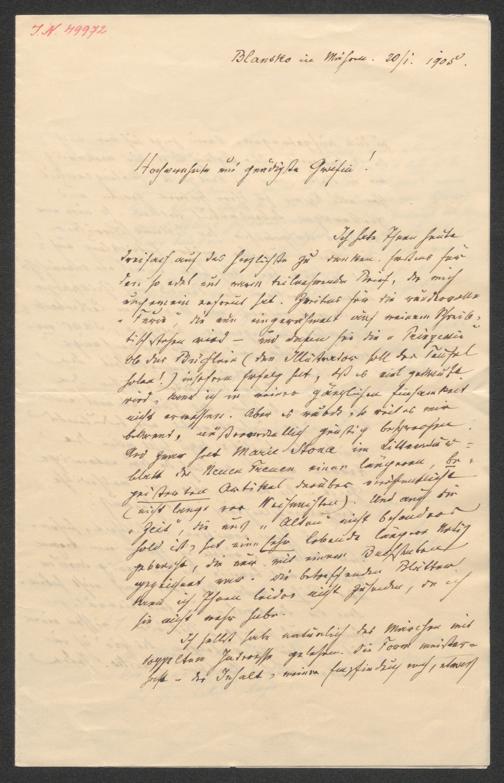 J.N. 49972
Blansko in Mähren. 20/1. 1905.
Hochverehrte und gnädigste Gräfin!
Ich habe Ihnen heute
dreifach auf das herzlichste zu danken. Erstens für
den so edel und warm teilnehmenden Brief, der mich
ungemein erfreut hat. Zweitens für die
die nun eingerahmt auf meinem Schreib-
tisch stehen wird – und dann für die „Prinzessin
Ob das Büchlein (den Illustrator soll der Teufel
holen!) insofern Erfolg hat, daß es viel gekauft
wird, kann ich in meiner gänzlichen Einsamkeit
nicht ermessen. Aber es wurde, so weit es mir
bekannt, außerordentlich günstig besprochen.
Und zwar hat Marie Stona im Litteratur-
blatt der Neuen Freien einen längeren, be-
geisterten Artikel darüber veröffentlicht
(nicht lange vor Weihnachten). Und auch die
„Zeit", die uns „Alten" nicht besonders
hold ist, hat eine sehr lobende längere Notiz
gebracht, die nur mit einem Buchstaben
gezeichnet war. Die betreffenden Blätter
kann ich Ihnen leider nicht zusenden, da ich
sie nicht mehr habe.
Ich selbst habe natürlich das Märchen mit
doppeltem Interesse gelesen. Die Form meister-
haft – der Inhalt, meiner Empfindung nach, etwas